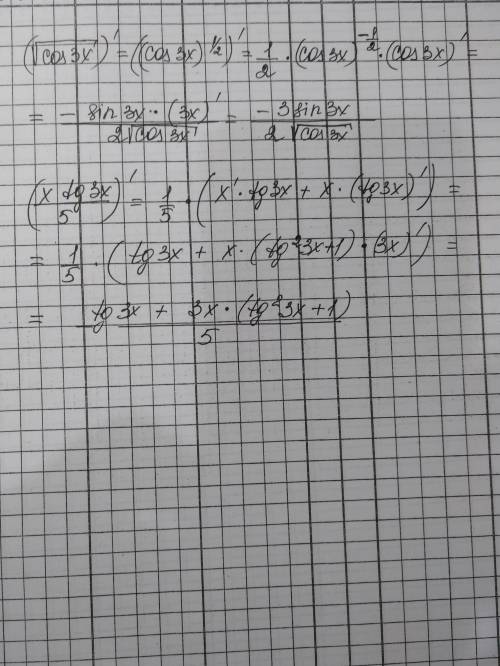 (√cos3x)' = ((cos3x)^1/2)' = 1/2 · (cos3x)^-1/2 · (cos3x)' =
= - sin3x · (3x)' / 2√cos3x = -3sin3x / 2√cos3x
(x tg3x / 5)' = 1/5 · (x' · tg3x + x · (tg3x)') =
= 1/5 · (tg3x + x · (tg²3x+1) · (3x)') =
= tg3x + 3x · (tg²3x+1) / 5